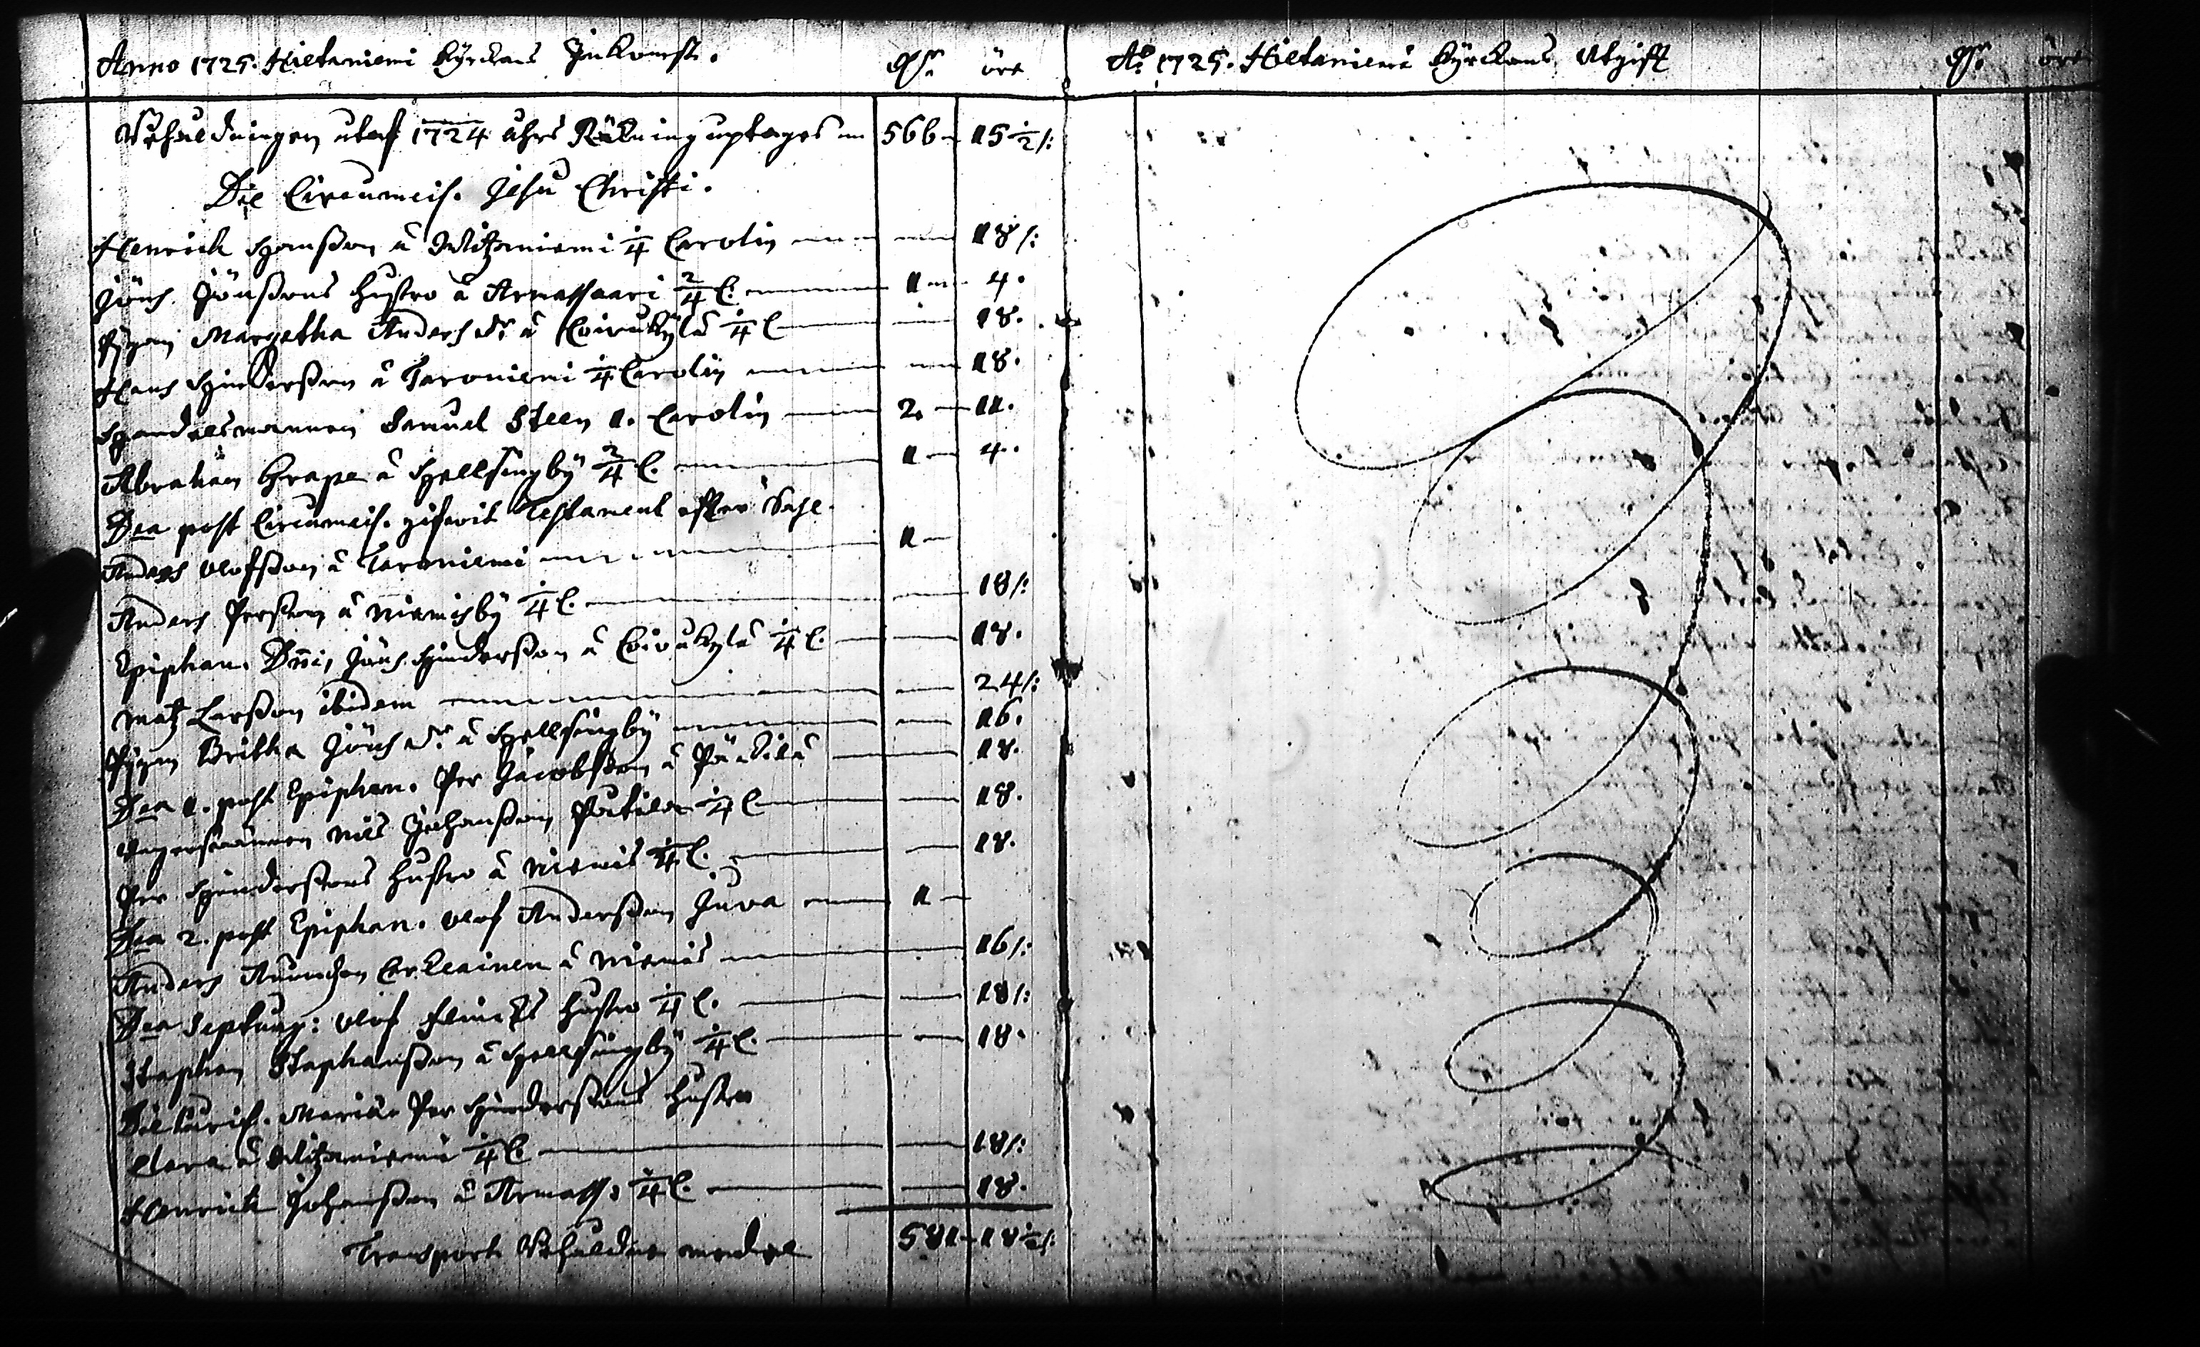 Anno 1725. Hietaniemi Kyrckans Inkomst. Dr. öre
Behåldningen utaf 1724 åhrs Räkning uptages 566 15½/:
Die Circumcis. Jesu Christi.
Henrich Hanßon å Witzaniemi ¼ Carolin 18/:
Jöns Jönßons hustro å Armassaari 2/4 C. 1 4.
Pigan Margetha Anders dr. å Coivukylä ¼ C 18.
Hans Hinderßon å Taroniemi ¼ Carolin 18.
Handelsmannen Samuel Steen 1. Carolin 2. 11.
Abraham Grape å Hellsingby 2/4 C. 1 4.
Dca post Circumcis. gifwit Testament efter Sahl.
Anders Olofßon å Taroniemi 1
Anders Perßon å Niemisby ¼ C. 18/:
Epiphan. Dni, Jöns Hinderßon å Coivukylä ¼ C. 18.
Matz Larßon ibidem 24/:
Pigan Britha Jöns dr. å Hellsingby 16.
Dca 1. post Epiphan. Per Jacobßon å Päckilä 18.
Nils Johanßon ¼ C 18.
Per Hinderßons hustro å Niemis ¼ C. 18.
Dca 2. post Epiphan. Olof Anderßon Juva 1
Anders å Niemis 16/:
Dca Septuag: Olof hustro ¼ C. 18/:
Stephan Stephanßon å Hellsingby ¼ C. 18.
Die Purif. Mariæ Per Hinderßons hustro
Clara å Witzaniemi ¼ C 18/:
Henrich Johanßon å Armass. ¼ C. 18.
Transport Behåldne medel 581 18½/:
Ao. 1725. Hietaniemi Kyrckans Utgift Dr. öre